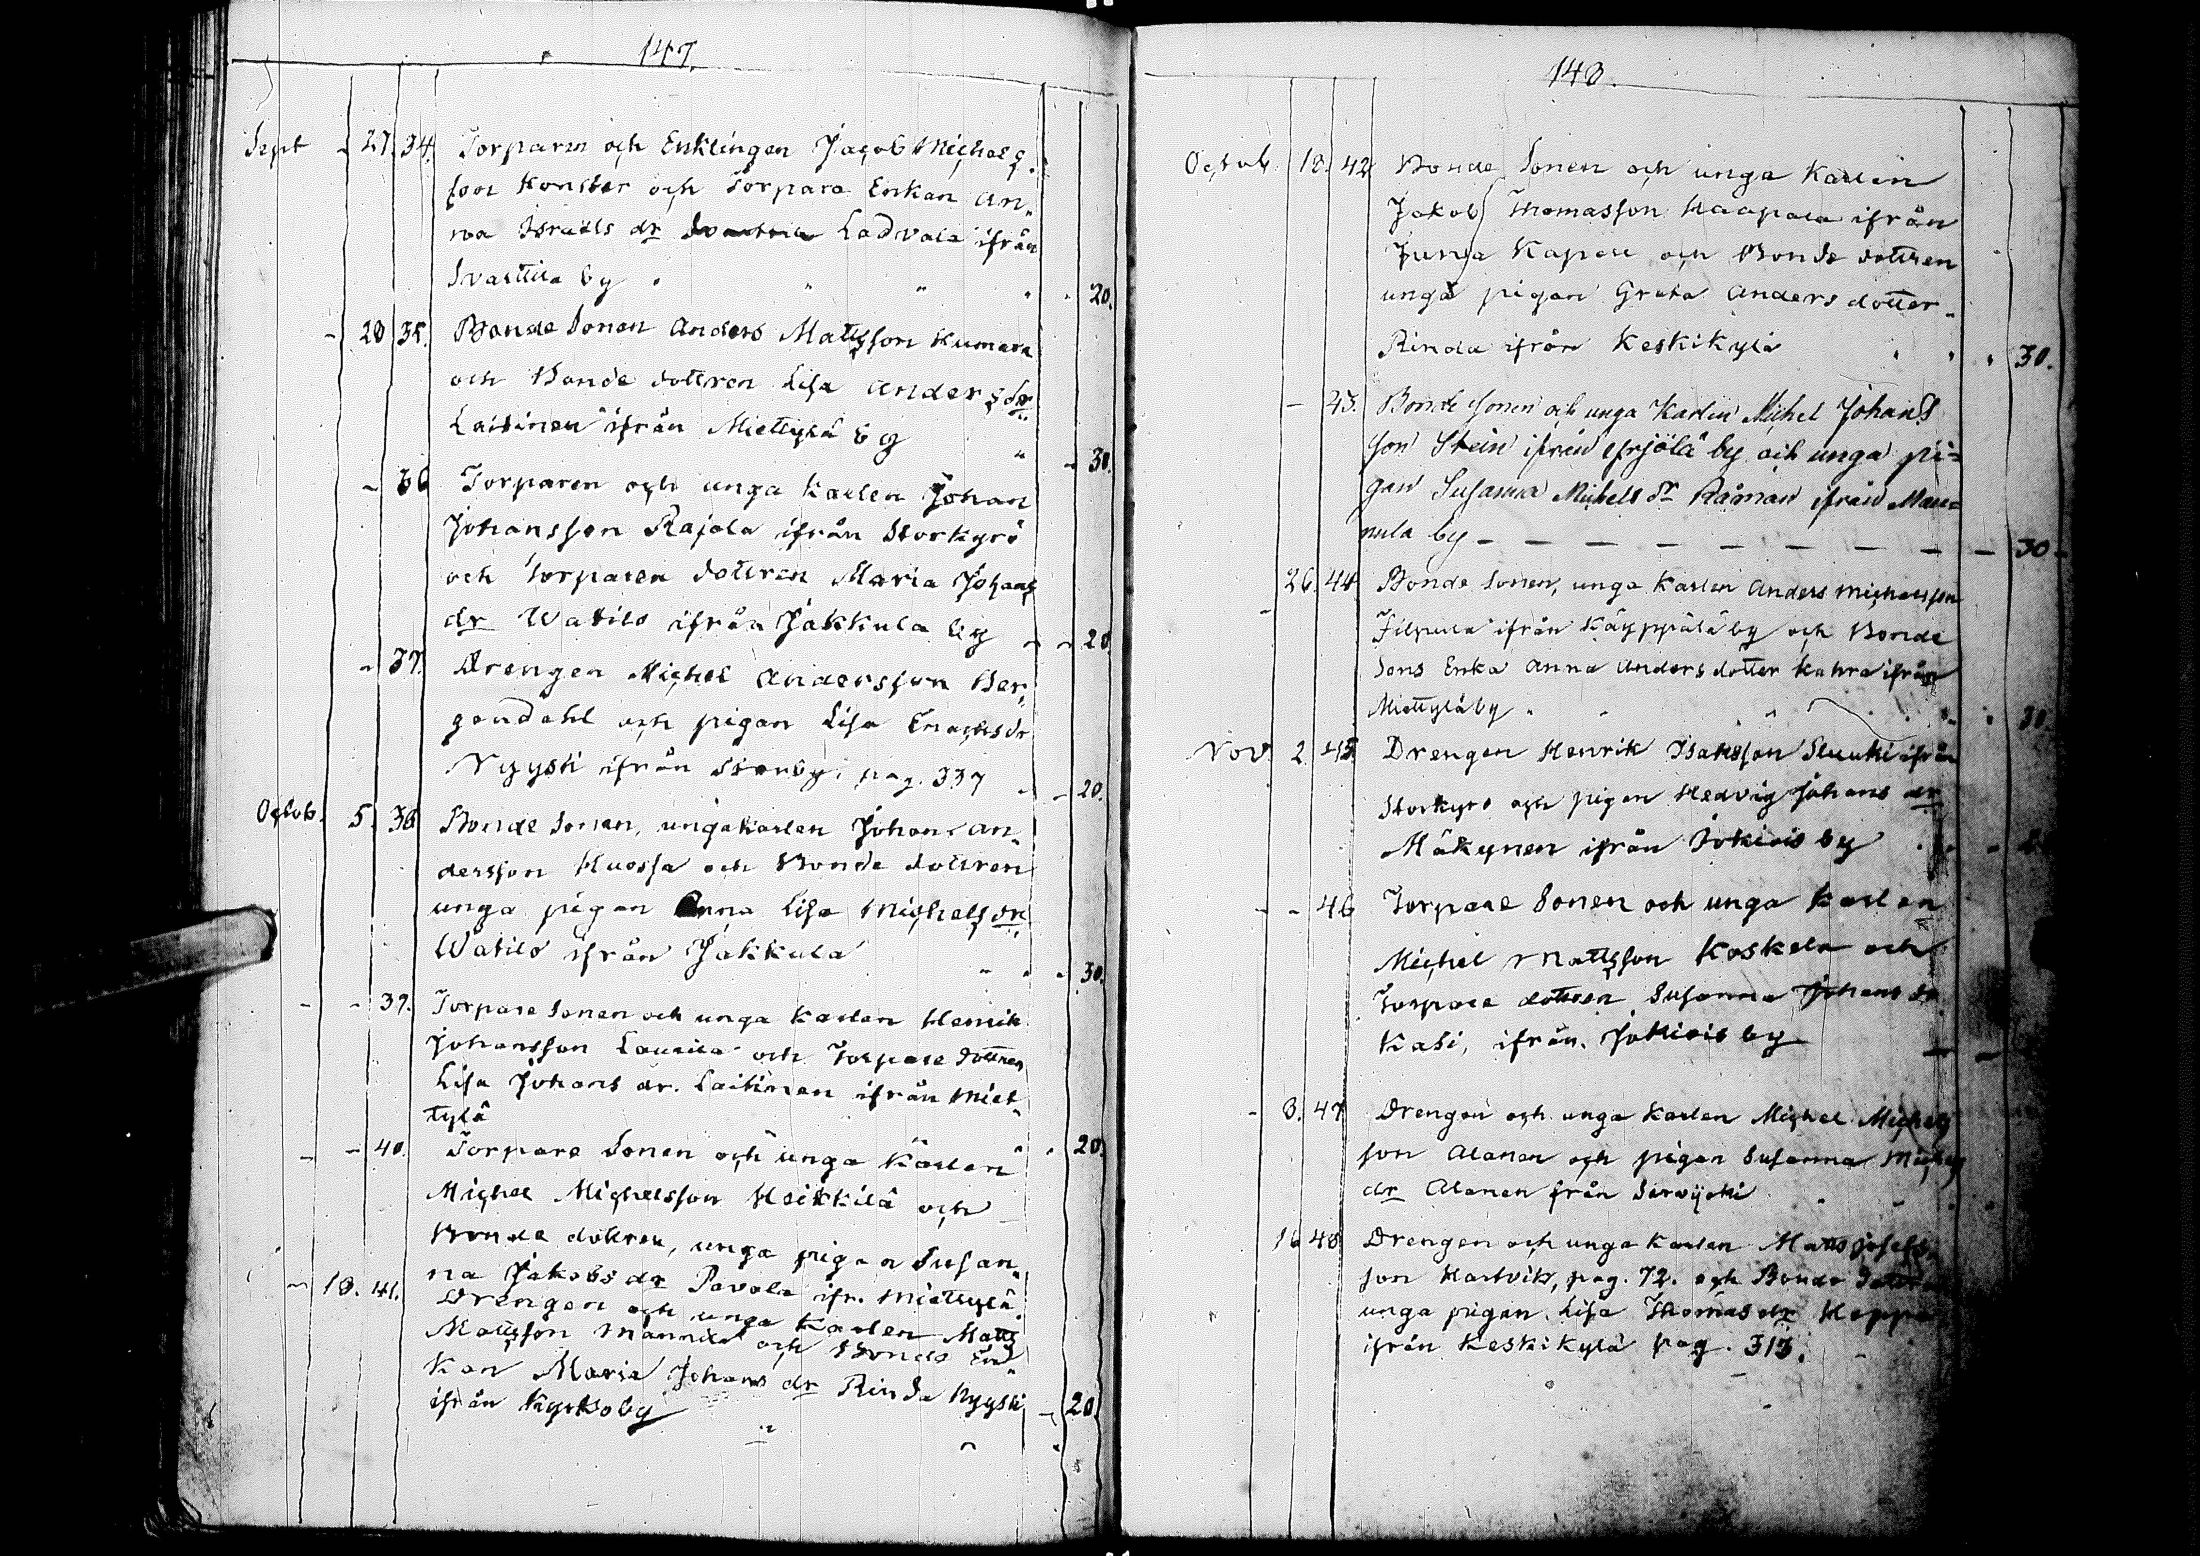 147.
Sept - 27. 34. Torparen och Enklingen Jacob Michels-
son Konster och Torpare Enkan An-
na Israels dr Ladvala ifrån
Svarttila by 20.
- 28 35. Bonde Sonen Anders Mattsson Kumara
och Bonde dottren Lisa Anders dr
Laitinen ifrån Miettylä by 30.
- 36 Torparen och unga Karlen Johan
Johansson Rajala ifrån Storkyrö
och Torparen dottren Maria Johans
dr Watilo ifrån Jakkula by - - 20
- 37. Drengen Michel Andersson Ber-
gendahl och pigan Lisa Enachsdr
Nyysti ifrån Storby. pag. 337 - - 20.
Octob. 5. 38 Bonde Sonen, unga Karlen Johan An-
dersson Huossa och Bonde dottren
unga pigan Anna Lisa Michels dr
Watilo ifrån Jakkula 30.
- - 39. Torpare Sonen och unga Karlen Henrik
Johansson Laurila och Torpare dottren
Lisa Johans dr. Laitinen ifrån Miet-
tylä 20.
- - 40. Torpare Sonen och unga Karlen
Michel Michelsson Heikkilä och
Bonde dottren, unga pigan Susan-
na Jakobs dr Pavola ifr. Miettylä
- 18. 41. Drengen och unga Karlen Matts
Mattsson Mannila och Bonde En-
kan Maria Johans dr Rinda Nyysti
ifrån Kyrkoby - 20
148.
Octob. 18. 42 Bonde Sonen och unga Karlen
Jakob Thomasson Haapala ifrån
Junga Kapell och Bonde dottren
unga pigan Greta Anders dotter
Rinda ifrån Keskikylä 30.
- 43. Bonde Sonen och unga Karlen Michel Johans
son Stein ifrån by och unga pi=
gan Susanna Michels dr Råman ifrån Man=
nula by - - - - - - - - - 30 -
- 26. 44 Bonde Sonen, unga Karlen Anders Michelsson
Filpula ifrån Käyppälä by och Bonde
Sons Enka Anna Anders dotter Kahra ifrån
Miettylä by 30.
Nov. 2. 45. Drengen Henrik Isaksson ifrån
Storkyro och pigan Hedvig Johans dr
Mäkynen ifrån Jokiois by
- - 46 Torpare Sonen och unga Karlen
Michel Mattsson Koskela och
Torpare dottren Susanna Johans dr
Kasi, ifrån. Jokiois by
- 3. 47 Drengen och unga Karlen Michel Michels
son Alanen och pigan Susanna Michels
dr Alanen från Servijoki
16 48 Drengen och unga Karlen Matts Josefs-
son Hartvik, pag. 72. och Bonde
unga pigan Lisa Thomas dr
ifrån Keskikylä pag. 313.